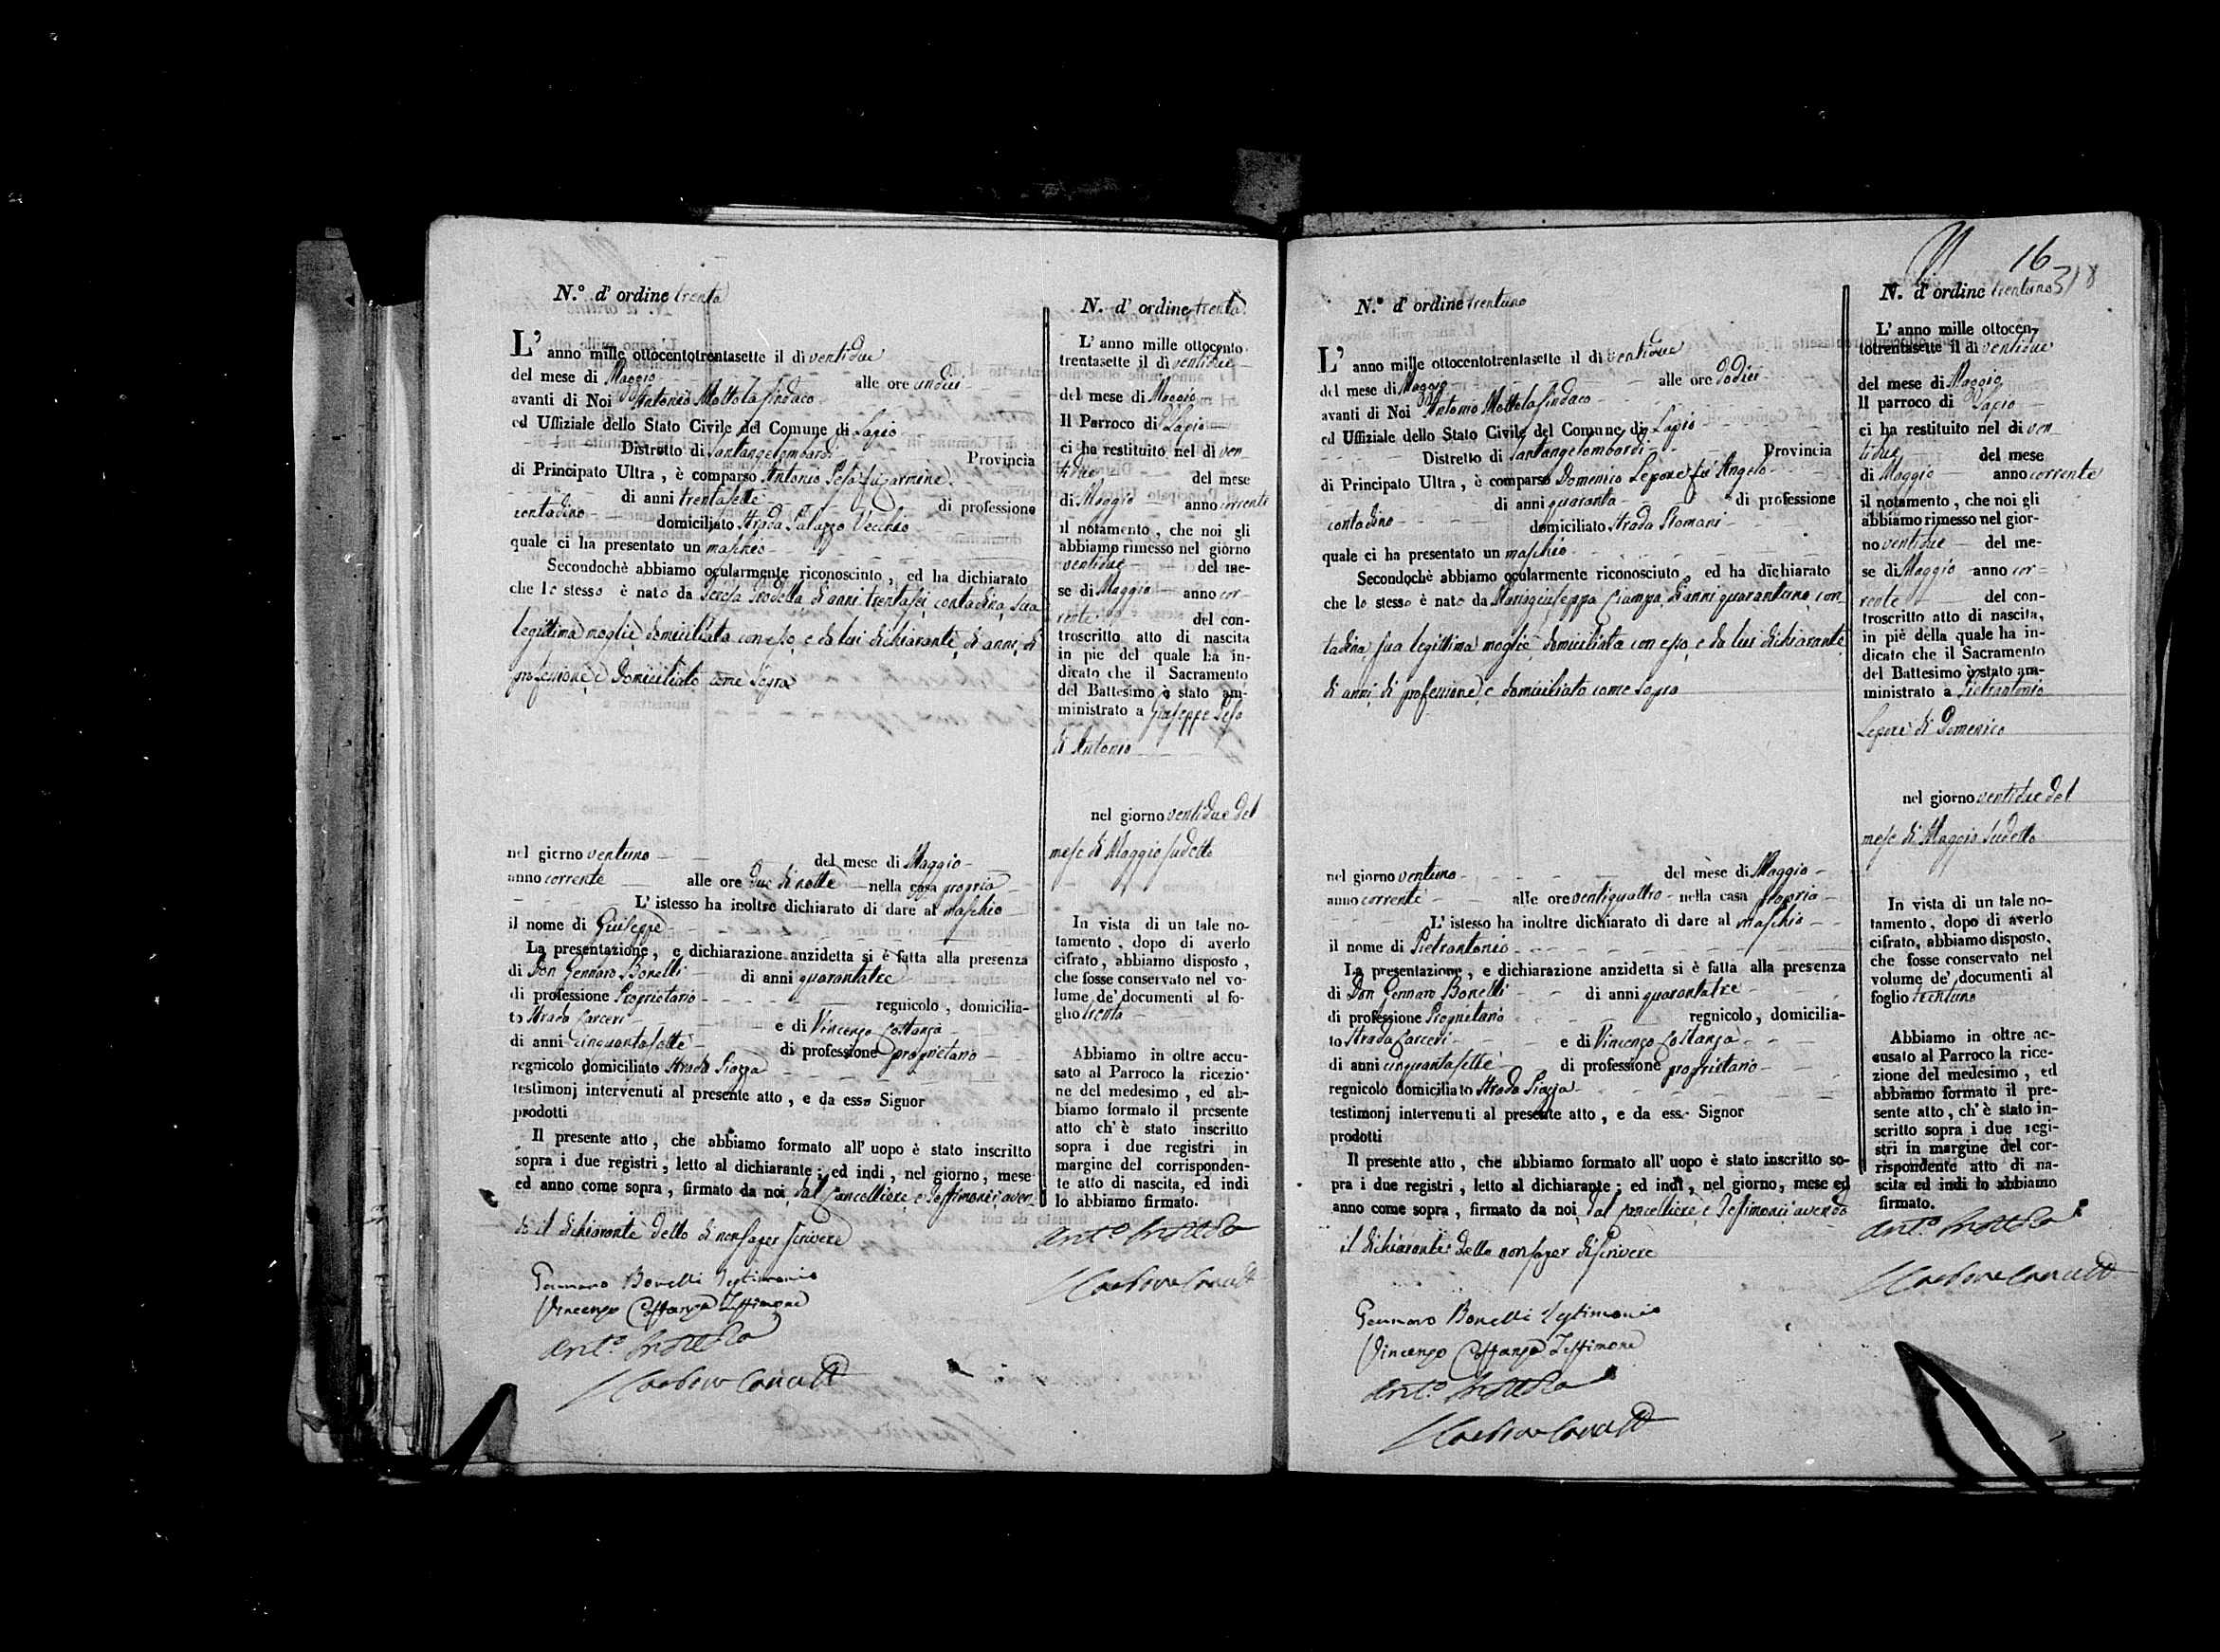 N.° d' ordine trenta
L' anno mille ottocentotrentasette il dì ventidue
del mese di Maggio alle ore undici
avanti di Noi Antonio Mottola Sindaco
ed Uffiziale dello Stato Civile del Comune di Lapio
Distretto di Santangelombardi Provincia
di Principato Ultra, è comparso Antonio Pesa fu Carmine
di anni trentasette di professione
contadino domiciliato Strada Palazzo Vecchio
quale ci ha presentato un maschio
Secondochè abbiamo ocularmente riconosciuto, ed ha dichiarato
che lo stesso è nato da Teresa di anni trentasei contadina, sua
legittima moglie domiciliata con esso, e da lui dichiarante, di anni, di
professione, e domiciliato come sopra
nel giorno ventuno del mese di Maggio
anno corrente alle ore due di notte nella casa propria
L' istesso ha inoltre dichiarato di dare al maschio
il nome di Giuseppe
La presentazione, e dichiarazione anzidetta si è fatta alla presenza
di Don Gennaro Bonelli di anni quarantatre
di professione Proprietario regnicolo, domicilia-
to Strada Carceri e di Vincenzo Costanza
di anni cinquantasette di professione proprietario
regnicolo domiciliato Strada Piazza
testimonj intervenuti al presente atto, e da esso Signor
prodotti
Il presente atto, che abbiamo formato all' uopo è stato inscritto
sopra i due registri, letto al dichiarante; ed indi, nel giorno, mese
ed anno come sopra, firmato da noi, dal Cancelliere e Testimonii, aven-
do il dichiarante detto di non saper scrivere
Gennaro Bonelli Testimonio
Vincenzo Costanza Testimone
Ant.° Mottola
N. d' ordine trenta
L' anno mille ottocento
trentasette il dì ventidue
del mese di Maggio
Il Parroco di Lapio
ci ha restituito nel dì ven-
tidue del mese
di Maggio anno corrente
il notamento, che noi gli
abbiamo rimesso nel giorno
ventidue del me-
se di Maggio anno cor-
rente del con-
troscritto atto di nascita
in pie del quale ha in-
dicato che il Sacramento
del Battesimo è stato am-
ministrato a Giuseppe Pesa
di Antonio
nel giorno ventidue del
mese di Maggio sudetto
In vista di un tale no-
tamento, dopo di averlo
cifrato, abbiamo disposto,
che fosse conservato nel vo-
lume de' documenti al fo-
glio trenta
Abbiamo in oltre accu-
sato al Parroco la ricezio-
ne del medesimo, ed ab-
biamo formato il presente
atto ch' è stato inscritto
sopra i due registri in
margine del corrisponden-
te atto di nascita, ed indi
lo abbiamo firmato.
Ant.° Mottola
16
318
N.° d' ordine trentuno
L' anno mille ottocentotrentasette il dì ventidue
del mese di Maggio alle ore dodici
avanti di Noi Antonio Mottola Sindaco
ed Uffiziale dello Stato Civile del Comune di Lapio
Distretto di Santangelombardi Provincia
di Principato Ultra, è comparso Domenico Lepore fu Angelo
di anni quaranta di professione
contadino domiciliato Strada
quale ci ha presentato un maschio
Secondochè abbiamo ocularmente riconosciuto, ed ha dichiarato
che lo stesso è nato da Mariagiuseppa Ciampa, di anni quarantuno, con-
tadina, sua legittima moglie domiciliata con esso, e da lui dichiarante,
di anni, di professione, e domiciliato come sopra
nel giorno ventuno del mese di Maggio
anno corrente alle ore ventiquattro nella casa propria
L' istesso ha inoltre dichiarato di dare al maschio
il nome di Pietrantonio
La presentazione, e dichiarazione anzidetta si è fatta alla presenza
di Don Gennaro Bonelli di anni quarantatre
di professione Proprietario regnicolo, domicilia-
to Strada Carceri e di Vincenzo Costanza
di anni cinquantasette di professione proprietario
regnicolo domiciliato Strada Piazza
testimonj intervenuti al presente atto, e da esso Signor
prodotti
Il presente atto, che abbiamo formato all' uopo è stato inscritto so-
pra i due registri, letto al dichiarante; ed indi, nel giorno, mese ed
anno come sopra, firmato da noi, dal Cancelliere e Testimonii avendo
il dichiarante detto non saper di scrivere
Gennaro Bonelli Testimonio
Vincenzo Costanza Testimone
Ant.° Mottola
N. d' ordine trentuno
L' anno mille ottocen-
totrentasette il dì ventidue
del mese di Maggio
Il parroco di Lapio
ci ha restituito nel dì ven-
tidue del mese
di Maggio anno corrente
il notamento, che noi gli
abbiamo rimesso nel gior-
no ventidue del me-
se di Maggio anno cor-
rente del con-
troscritto atto di nascita,
in piè della quale ha in-
dicato che il Sacramento
del Battesimo è stato am-
ministrato a Pietrantonio
Lepore di Domenico
nel giorno ventidue del
mese di Maggio sudetto
In vista di un tale no-
tamento, dopo di averlo
cifrato, abbiamo disposto,
che fosse conservato nel
volume de' documenti al
foglio trentuno
Abbiamo in oltre ac-
cusato al Parroco la rice-
zione del medesimo, ed
abbiamo formato il pre-
sente atto, ch' è stato in-
scritto sopra i due regi-
stri in margine del cor-
rispondente atto di na-
scita ed indi lo abbiamo
firmato.
Ant.° Mottola